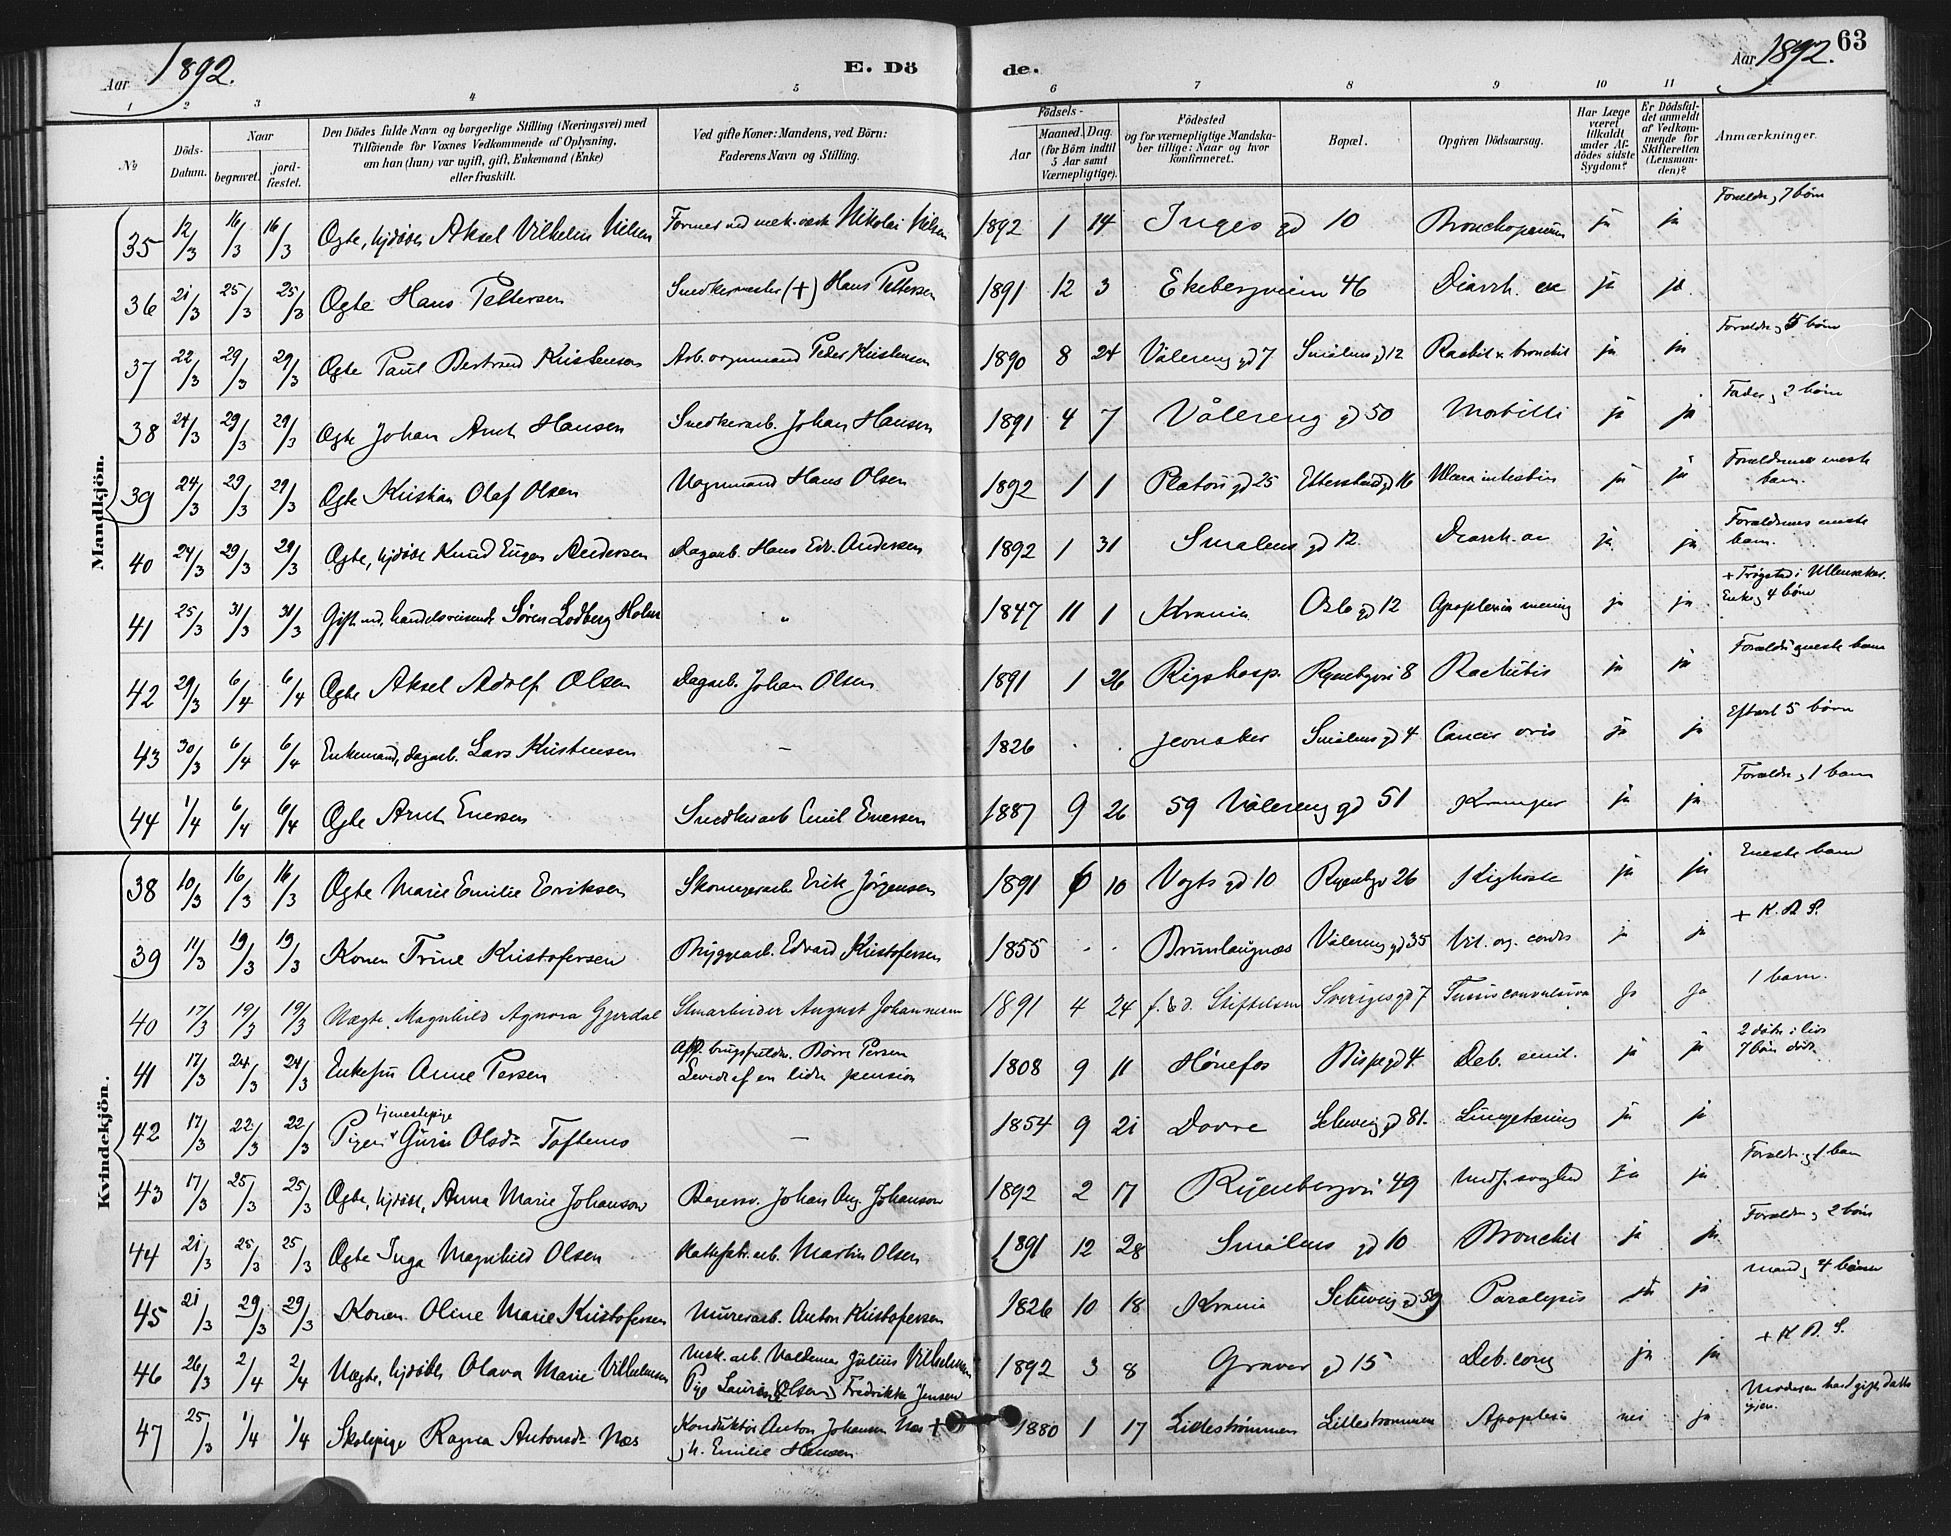 Aar 1892.
E. Döde.
Aar 1892.
63
1 2 3 4 5 6 7 8 9 10 11
No
Döds-Datum.
Naar
begravet.
jord-fæstet.
Den Dödes fulde Navn og borgerlige Stilling (Næringsvei) med
Tilföiende for Voxnes Vedkommende af Oplysning,
om han (hun) var ugift, gift, Enkemand (Enke)
eller fraskilt.
Ved gifte Koner: Mandens, ved Börn:
Faderens Navn og Stilling.
Födsels-
Aar
Maaned. Dag.
(for Börn indtil
5 Aar samt
Værnepligtige).
Födested
og for værnepligtige Mandska-
ber tillige: Naar og hvor
konfirmeret.
Bopæl.
Opgiven Dödsaarsag.
Har Læge
været
tilkaldt
under Af-
dödes sidste
Sygdom?
Er Dödsfal-
det anmeldt
af Vedkom-
mende for
Skifteretten
(Lensman-
den)?
Anmærkninger.
Mandkjön.
35 12/3 16/3 16/3 Ægte, hjdöbt Aksel Vilhelm Nilsen Former ved mek. værk Nikolai Nilsen 1892 1 14 Inges gd 10 Bronchopneum ja ja Forældr og 7 börn
36 21/3 25/3 25/3 Ægte Hans Pettersen Snedkermester (+) Hans Pettersen 1891 12 3 Ekebergveien 46 Diarrh. ja ja
37 22/3 29/3 29/3 Ægte Paul Bertrand Kristensen Arb. Peder Kristensen 1890 8 24 Vålereng gd 7 Smålens gd 12 Rachit & bronchit ja ja Forældr og 5 börn
38 24/3 29/3 29/3 Ægte Johan Arnt Hansen Snedkerarb. Johan Hansen 1891 4 7 Vålereng gd 50 Morbilli ja ja Fader og 2 börn
39 24/3 29/3 29/3 Ægte Kristian Olaf Olsen Vognmand Hans Olsen 1892 1 1 Platous gd 25 Etterstad gd 16 ja ja Forældrenes eneste barn.
40 24/3 29/3 29/3 Ægte, hjdöbt Knud Eugen Andersen Dagarb. Hans Edv. Andersen 1892 1 31 Smalens gd 12 Diarrh. ja ja Forældrenes eneste barn.
41 25/3 31/3 31/3 Gift md, handelsreisende Sören Lodberg Holm " 1847 11 1 Krania Oslo gd 12 Apoplexia mening ja ja + Trögstad i Ullensaker. Enke og 4 börn
42 29/3 6/4 6/4 Ægte Aksel Adolf Olsen Dagarb. Johan Olsen 1891 1 26 Rigshosp. Ryenbgvei 8 Rachitis ja ja Forældr eneste barn
43 30/3 6/4 6/4 Enkemand, dagarb. Lars Kristensen — 1826 . . Jevnaker Smålens gd 4 Cancer oris ja ja Efterl 5 börn
44 1/4 6/4 6/4 Ægte Arnt Enersen Snedkerarb Emil Enersen 1887 9 26 59 Vålereng gd 51 Kramper ja ja Forældr og 1 barn
Kvindekjön.
38 10/3 16/3 16/3 Ægte Marie Emilie Eriksen Skomagerarb Erik Jörgensen 1891 6 10 Vogts gd 10 Ryenbgv 26 Kighoste ja ja Eneste barn
39 11/3 19/3 19/3 Konen Trine Kristofersen Bryggearb. Edvard Kristofersen 1855 . . Brunlaugnæs Vålereng gd 35 Vit. org. cordis ja ja + K. A. S.
40 17/3 19/3 19/3 Uægte Magnhild Agnora Gjerdal Stenarbeider August Johannesen 1891 4 24 f. & d. Stiftelsen Sveriges gd 7 Tussis convulsiva Ja Ja 1 barn.
41 17/3 24/3 24/3 Enkefru Anne Persen Afd. brugsfuldm. Börre Persen Levede af en liden pension 1808 9 11 Hönefos Bispe gd 4. Deb. senil. ja ja 2 dötre i live 7 börn döde
42 17/3 22/3 22/3 Pigen tjenestepige Guri Olsdr Toftemo — 1854 9 21 Dovre Schweig gd 81. Lungetæring ja ja
43 17/3 25/3 25/3 Ægte, hjdöbt, Anna Marie Johanson Bagersv. Johan Aug Johanson 1892 2 17 Ryenbergvei 49 Medf. svaghed ja ja Forældr. og 1 barn
44 21/3 25/3 25/3 Ægte Inga Magnhild Olsen arb. Martin Olsen 1891 12 28 Smålens gd 10 Bronchit ja ja Forældr og 2 börn
45 21/3 29/3 29/3 Konen Oline Marie Kristofersen Murerarb. Anton Kristofersen 1826 10 18 Krania Schweig gd 59 Paralysis ja ja mand og 4 börn
46 26/3 2/4 2/4 Uægte, hjdöbt Olava Marie Vilhelmsen Mek. arb. Valdemar Julius Vilhelmsen Pige Laurine Olsen Fredrikke Jensen 1892 3 8 Graver gd 15 Deb. cong ja ja + K A. S.
47 25/3 1/4 1/4 Skolepige Ragna Antonsdr Næs Konduktör Anton Johansen Næs + og h. Emilie Hansen 1880 1 17 Lilleströmmen Lillestrommen Apoplexi nei ja Moderen havd gift datter igjen.